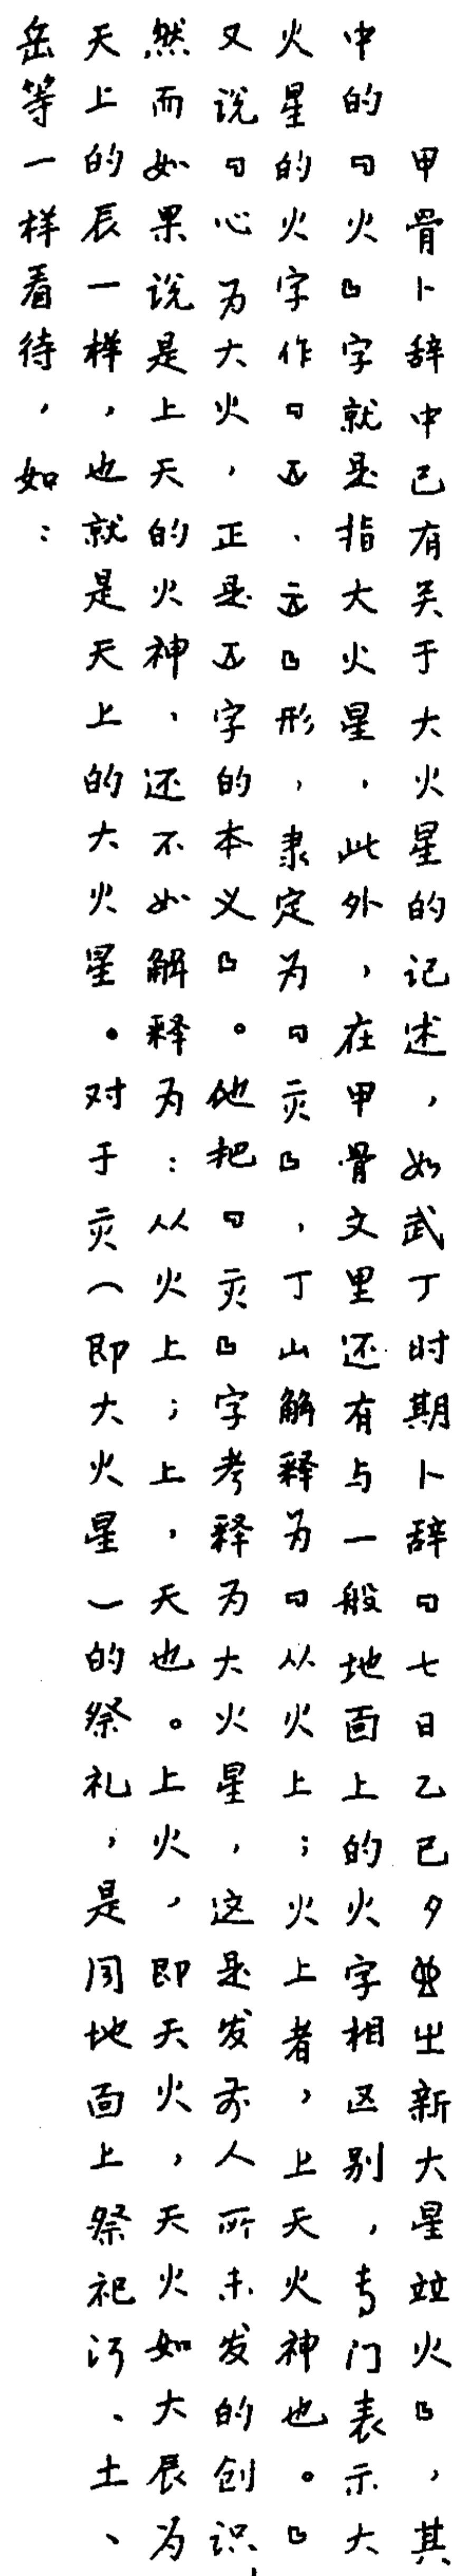 甲骨卜辞中已有关于大火星的记述，如武丁时期卜辞「七日乙巳夕出新大星竝火」，其
中的「火」字就是指大火星，此外，在甲骨文里还有与一般地面上的火字相区别，专门表示大
火星的火字作「、」形，隶定为「灾」，丁山解释为「从火上；火上者，上天火神也。」
又说「心为大火，正是字的本义」。他把「灾」字考释为大火星，这是发前人所未发的创识，
然而如果说是上天的火神，还不如解释为：从火上；上，天也。上火，即天火，天火如大辰为
天上的辰一样，也就是天上的大火星。对于灾（即大火星）的祭礼，是同地面上祭祀河、土、
岳等一样看待，如：